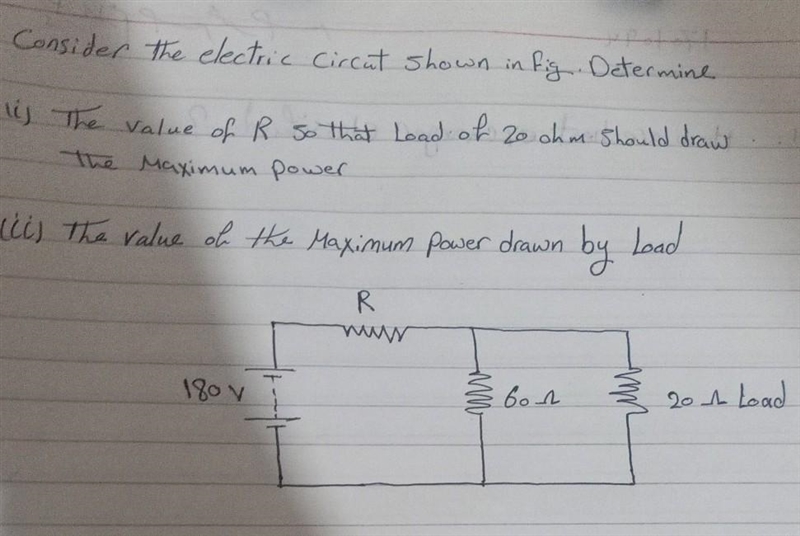 Consider the electric circut shown in fig. Determine
(i) The value of R so that Load of 20 ohm should draw
the Maximum power
(ii) The value of the Maximum power drawn by Load
R
180 V
60 Ω
20 Ω Load